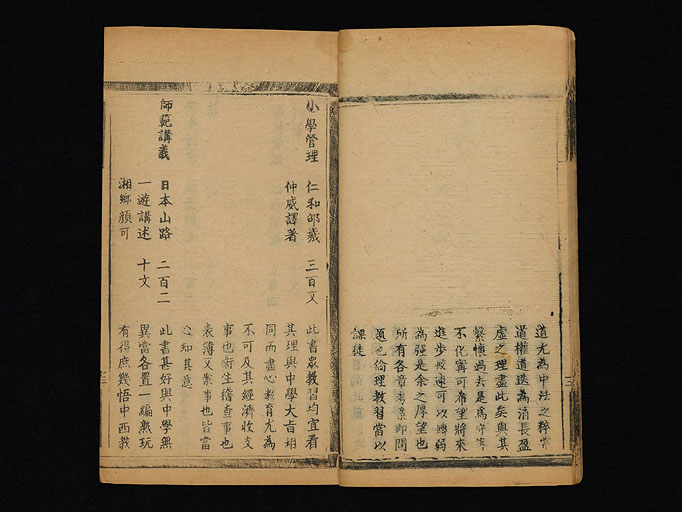 道尤為中法之粹
道權道迭為消長盈
虛之理盡此矣與其
繫懷過去是為守
不化寗可希望將來
進步較速可以轉弱
為強是余之厚望也
所有各章考察即閱
題也倫理教習當以
課徒
三
小學管理 仁和邵羲 三百文 此書眾教習均宜看
仲威譯著 其理與中學大旨相
同而盡心教育尤為
不可及其經濟收支
事也衛生稽查事也
表簿文案事也皆當
心知其意
師範講義 日本山路 二百二 此書甚好與中學無
一遊講述 十文 異當各置一編熟玩
湘鄉顏可 有得庶幾悟中西教